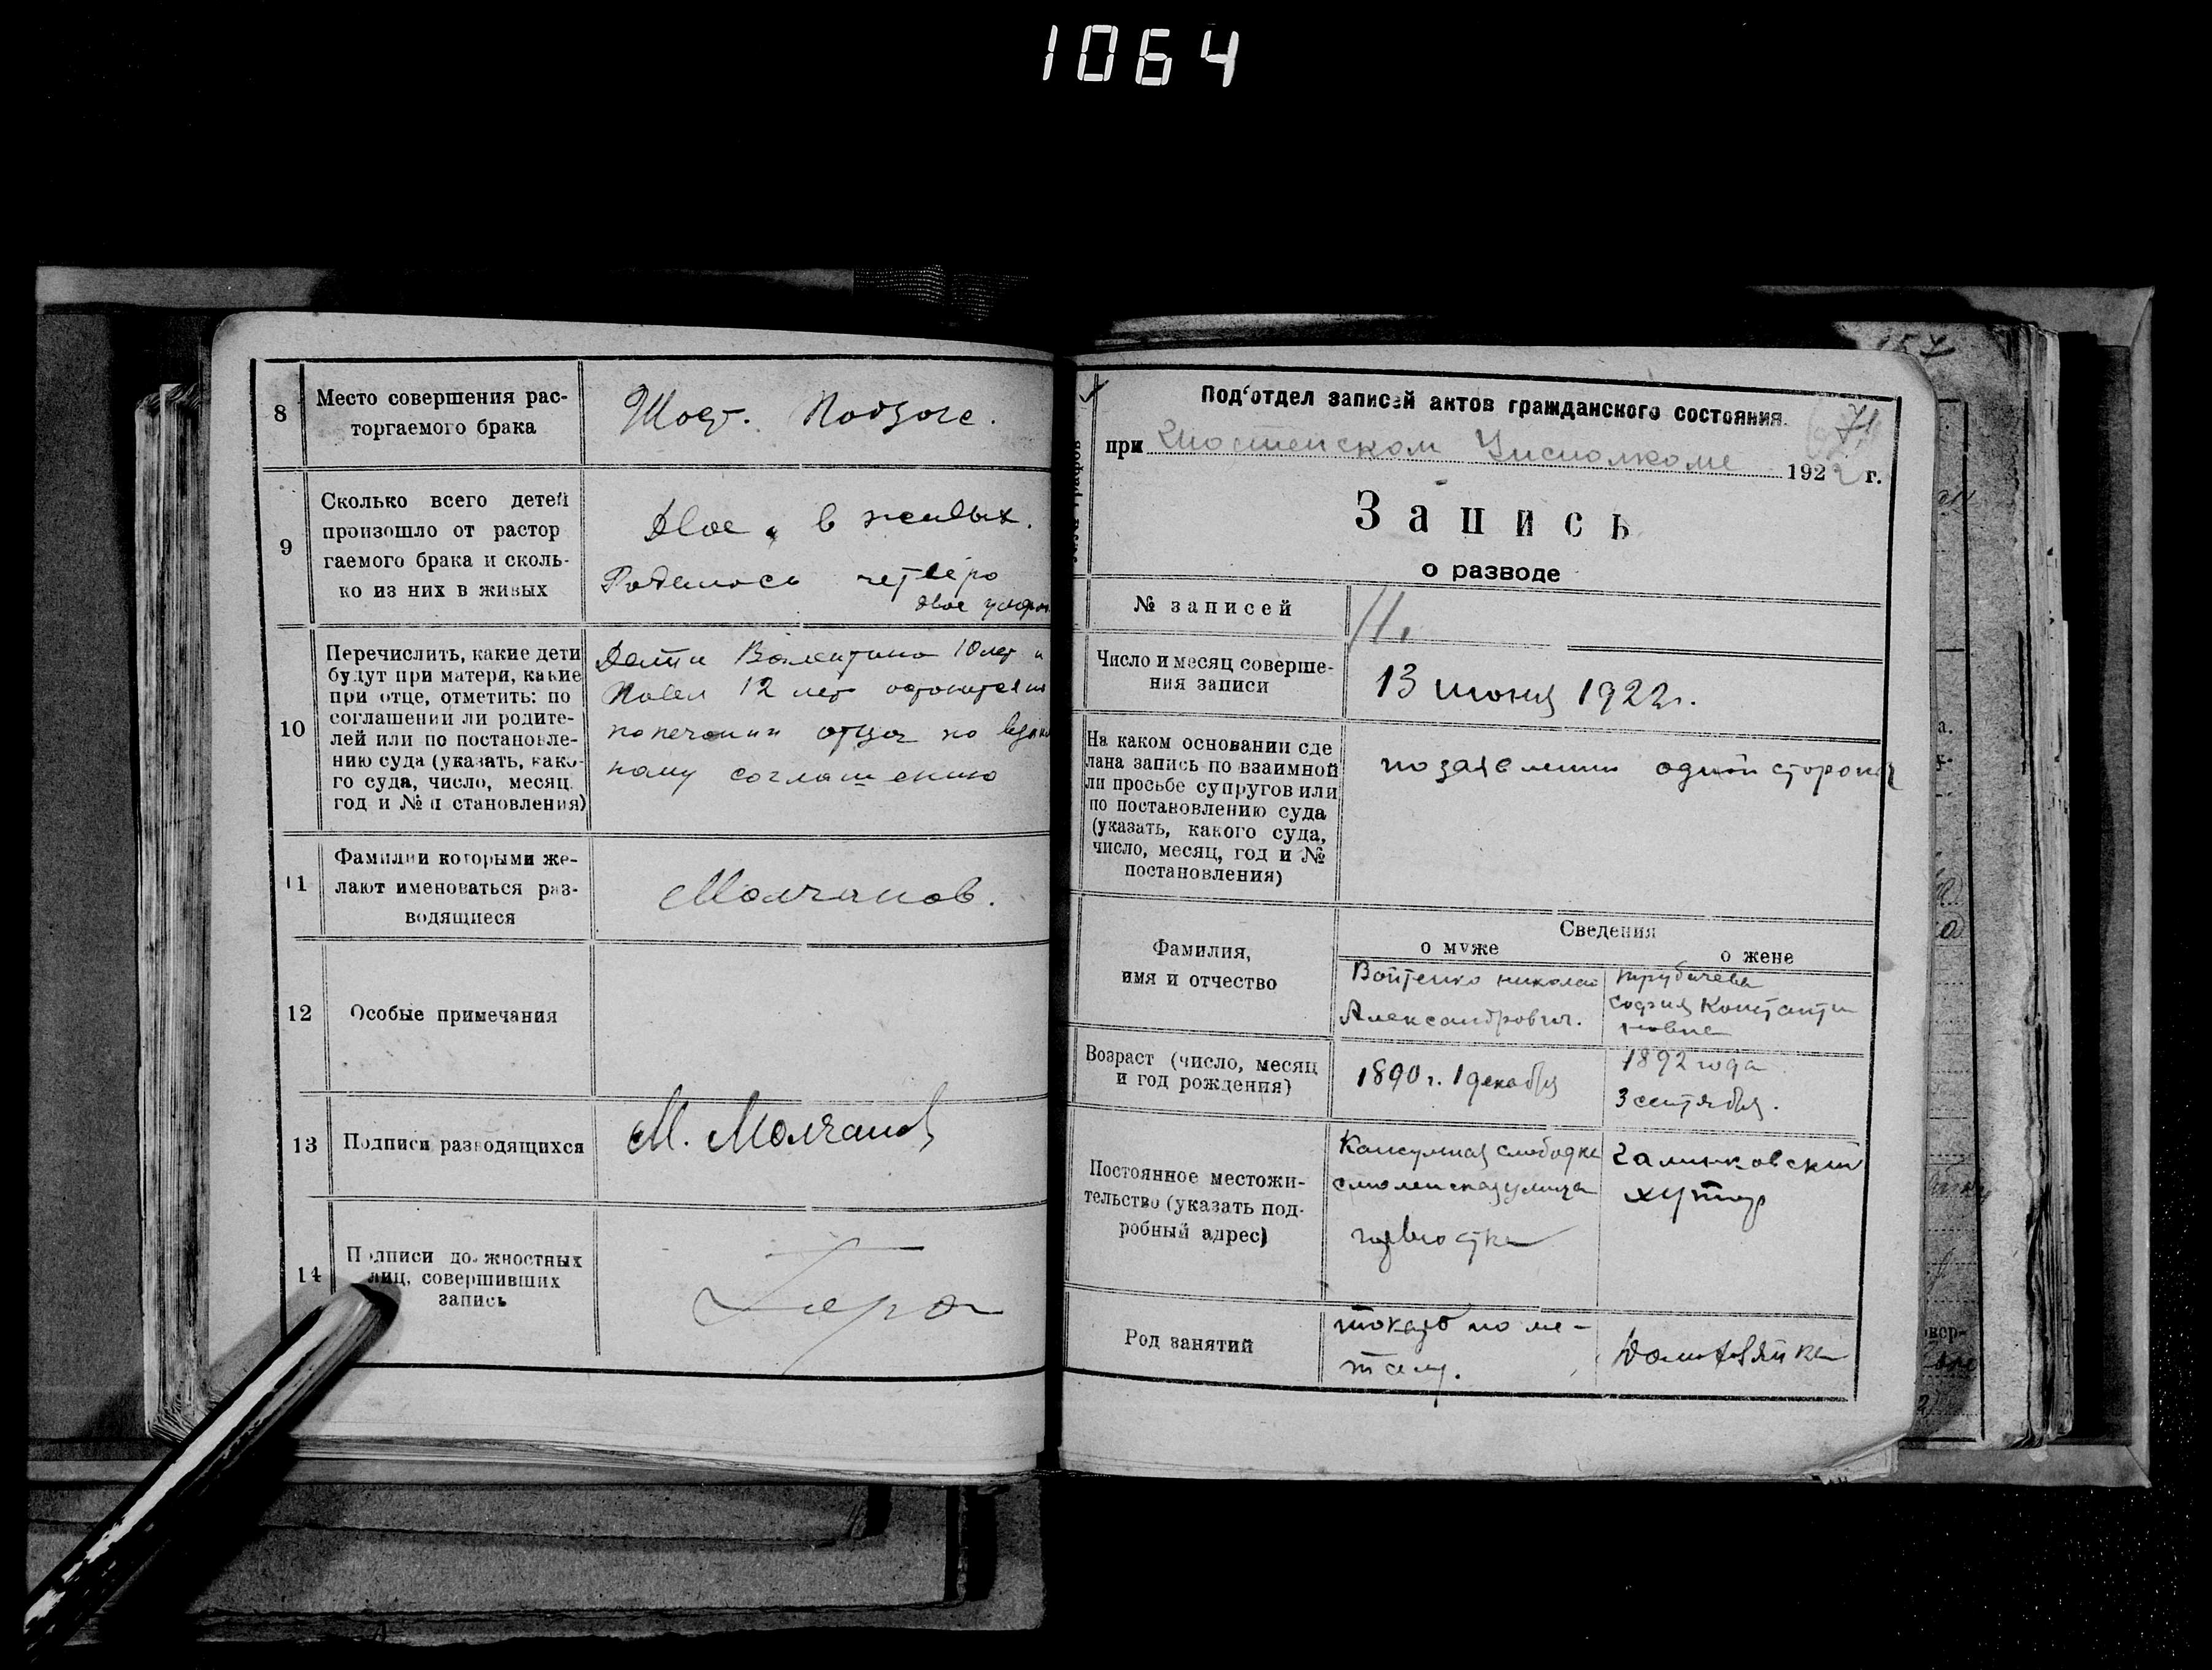 1064
8
Место совершения рас-
торгаемого брака
Шост. Подзаг.
9
Сколько всего детей
произошло от растор
гаемого брака и сколь-
ко из них в живых
Двое в живых.
Родилось четверо
двое умерли
10
Перечислить, какие дети
будут при матери, какие
при отце, отметить: по
соглашении ли родите-
лей или по постановле-
нию суда (указать, како-
го суда, число, месяц
год и № п становления)
Дети Валентина 10 лет и
Павел 12 лет остаются на
попечении отца по взаим
ному соглашению
11
Фамилии которыми же-
лают именоваться раз-
водящиеся
Молчанов.
12
Особые примечания
13
Подписи разводящихся
М. Молчанов
14
Подписи должностных
лиц, совершивших
запись
157
Под‘отдел записей актов гражданского состояния.
71
при Шостенском Уисполкоме 1922 г.
Запись
о разводе
№ записей
11.
Число и месяц соверше-
ния записи
13 июня 1922 г.
На каком основании сде
лана запись по взаимной
ли просьбе супругов или
по постановлению суда
(указать, какого суда,
число, месяц, год и №
постановления)
по заявлении одной стороны
Фамилия,
имя и отчество
Сведения
о муже
о жене
Войтенко Николай
Александрович.
Трубачева
София Константи
новна
Возраст (число, месяц
и год рождения)
1890 г. 1 декабря
1892 года
3 сентября.
Постоянное местожи-
тельство (указать под-
робный адрес)
Капсульная слободка
смоленская улица
Галинковский
хутор
Род занятий
токарь по ме-
талу.
Домохозяйка